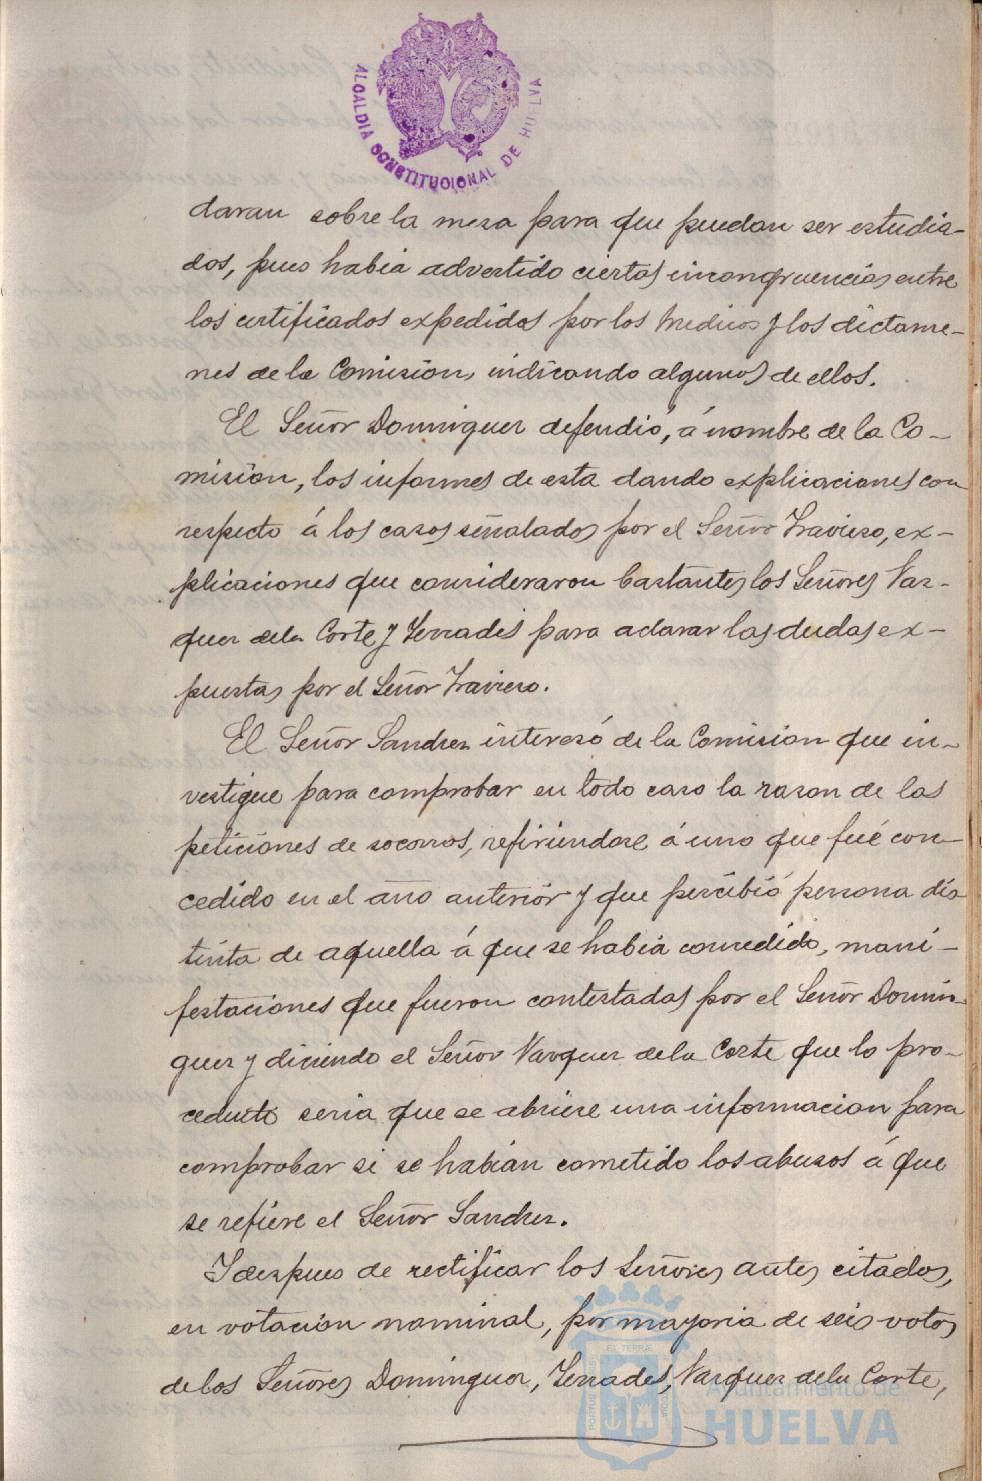 ALCALDIA CONSTITUCIONAL DE HUELVA
daran sobre la mesa para que puedan ser estudia-
dos, pues habia advertido ciertas incongruencias entre
los certificados expedidos por los Medicos y los dictame-
nes de la Comision, indicando algunos de ellos.
El Señor Dominguez defendió, á nombre de la Co-
mision, los informes de esta dando explicaciones con
respecto á los casos señalados por el Señor Travieso, ex-
plicaciones que consideraron bastantes los Señores Vaz-
quez de la Corte y Terrades para aclarar las dudas ex-
puestas por el Señor Travieso.
El Señor Sanchez interesó de la Comision que in-
vestigue para comprobar en todo caso la razon de las
peticiones de socorros, refiriendose á uno que fué con-
cedido en el año anterior y que percibió persona dis-
tinta de aquella á que se habia concedido, mani-
festaciones que fueron contestadas por el Señor Domin-
guez y diciendo el Señor Vazquez de la Corte que lo pro-
cedente seria que se abriese una informacion para
comprobar si se habian cometido los abusos á que
se refiere el Señor Sanchez.
Y despues de rectificar los Señores antes citados,
en votacion nominal, por mayoria de seis votos
de los Señores Dominguez, Terrades, Vazquez de la Corte,
Ayuntamiento de
HUELVA